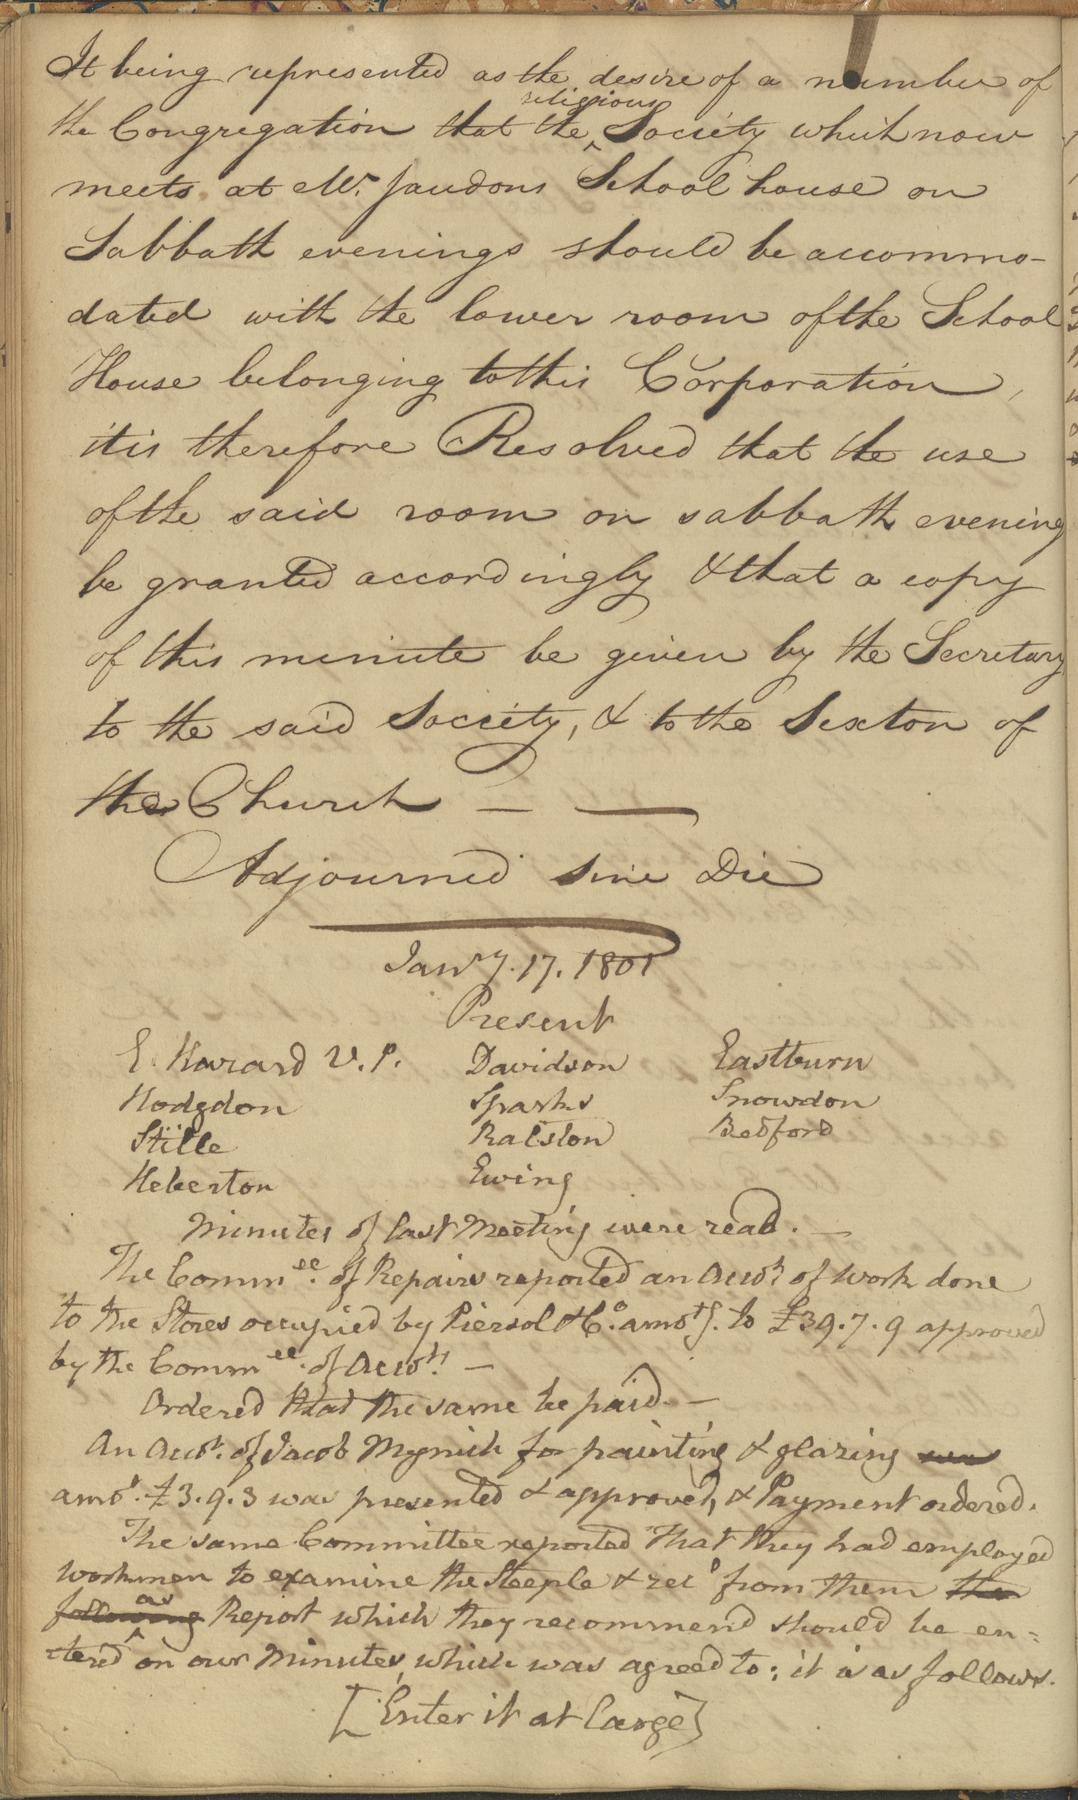 It being represented as the desire of a number of
the Congregation that the ^religious Society which now
meets at Mr. Jaudons School house on
Sabbath evenings should be accommo-
dated with the lower room of the School
House belonging to this Corporation,
it is therefore Resolved that the use
of the said room on sabbath evening
be granted accordingly & that a copy
of this minute be given by the Secretary
to the said Society, & to the Sexton of
the Church — —
Adjourned Sine Die
Jany. 17. 1801
Present
E. Hazard V. P. Davidson Eastburn
Hodgdon Sparks Snowdon
Stille Ralston Bedford
Heberton Ewing
Minutes of last Meeting were read. —
The Commee. of Repairs reported an Accot. of work done
to the Stores occupied by Piersol & Co. amotg. to £39.7.9 approved
by the Commee. of Accots. —
Ordered that the same be paid. —
An Accot. of Jacob Mynich for painting & glazing was
amotg. £3.9.3 was presented & approved, & Payment ordered.
The same Committee reported that they had employed
workmen to examine the Steeple & recd from them the
following ^as Report which they recommend should be en-
tered on our Minutes, which was agreed to; it is as follows.
[Enter it at large]